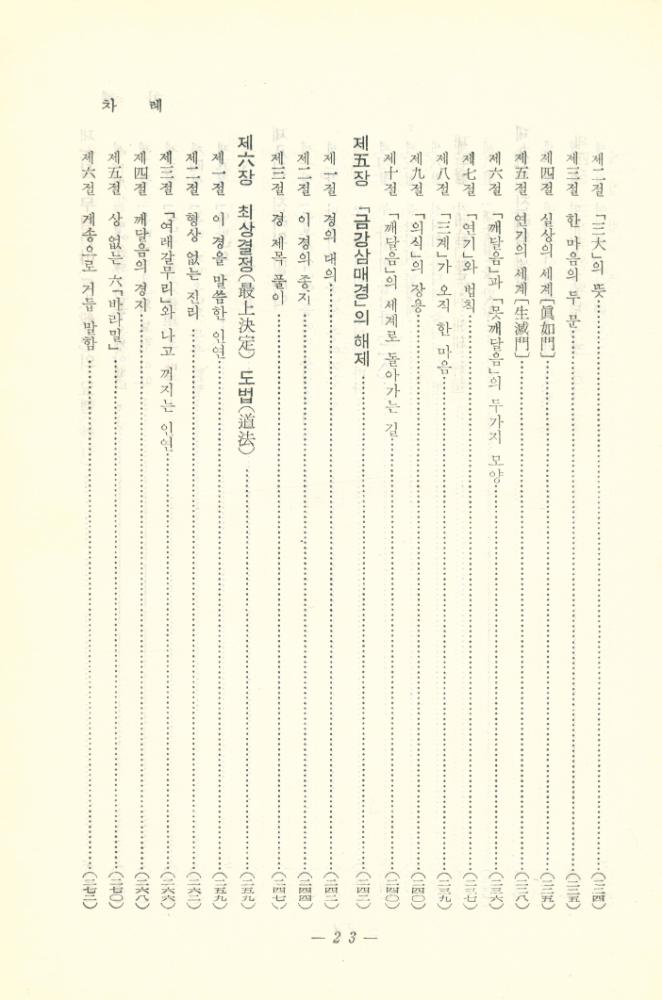 차 례
제二절 「三大」의 뜻……(二三四)
제三절 한 마음의 두 문……(二三五)
제四절 실상의 세계[眞如門]……(二三五)
제五절 연기의 세계[生滅門]……(二三八)
제六절 「깨달음」과 「못깨달음」의 두가지 모양……(二三六)
제七절 「연기」와 법칙……(二三七)
제八절 「三계」가 오직 한 마음……(二三九)
제九절 「의식」의 장용……(二四〇)
제十절 「깨달음」의 세계로 돌아가는 길……(二四〇)
제五장 「금강삼매경」의 해제……(二四二)
제一절 경의 대의……(二四二)
제二절 이 경의 종지……(二四四)
제三절 경 제목 풀이……(二四七)
제六장 최상결정(最上決定) 도법(道法)……(二五九)
제一절 이 경을 말씀한 인연……(二五九)
제二절 형상 없는 진리……(二六二)
제三절 「여래갈무리」와 나고 꺼지는 인연……(二六六)
제四절 깨달음의 경지……(二六八)
제五절 상 없는 六「바라밀」……(二七〇)
제六절 게송으로 거듭 말함……(二七二)
— 2 3 —